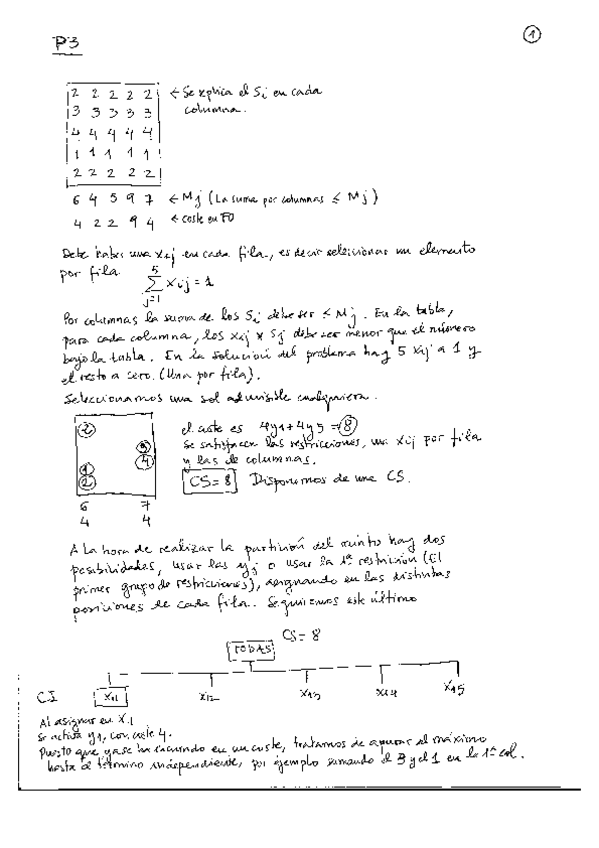 P3
1
2 2 2 2 2 ← Se replica el Si en cada
3 3 3 3 3 columna.
4 4 4 4 4
1 1 1 1 1
2 2 2 2 2
6 4 5 9 7 ← Mj (La suma por columnas ≤ Mj)
4 2 2 9 4 ← coste en FO
Debe haber una xij en cada fila, es decir seleccionar un elemento
por fila. 5∑j=1 xij = 1
Por columnas la suma de los Si debe ser ≤ Mj. En la tabla,
para cada columna, los xij x Sj debe ser menor que el número
bajo la tabla. En la solución del problema hay 5 xij a 1 y
el resto a cero. (Una por fila).
Seleccionamos una sol admisible cualquiera.
2 el coste es 4y1+4y5 = 8
3 Se satisfacen las restricciones, una xij por fila
4 y las de columnas.
1
2 CS=8 Disponemos de una CS.
6 7
4 4
A la hora de realizar la partición del conjunto hay dos
posibilidades, usar las yj o usar la 1ª restricción (El
primer grupo de restricciones), asignando en las distintas
posiciones de cada fila. Seguiremos este último
CS=8
TODAS
C.I x11 x12 x13 x14 x15
Al asignar en x11
se activa y1, con coste 4.
Puesto que ya se ha incurrido en un coste, tratamos de apurar al máximo
hasta el término independiente, por ejemplo sumando el 3 y el 1 en la 1ª col.